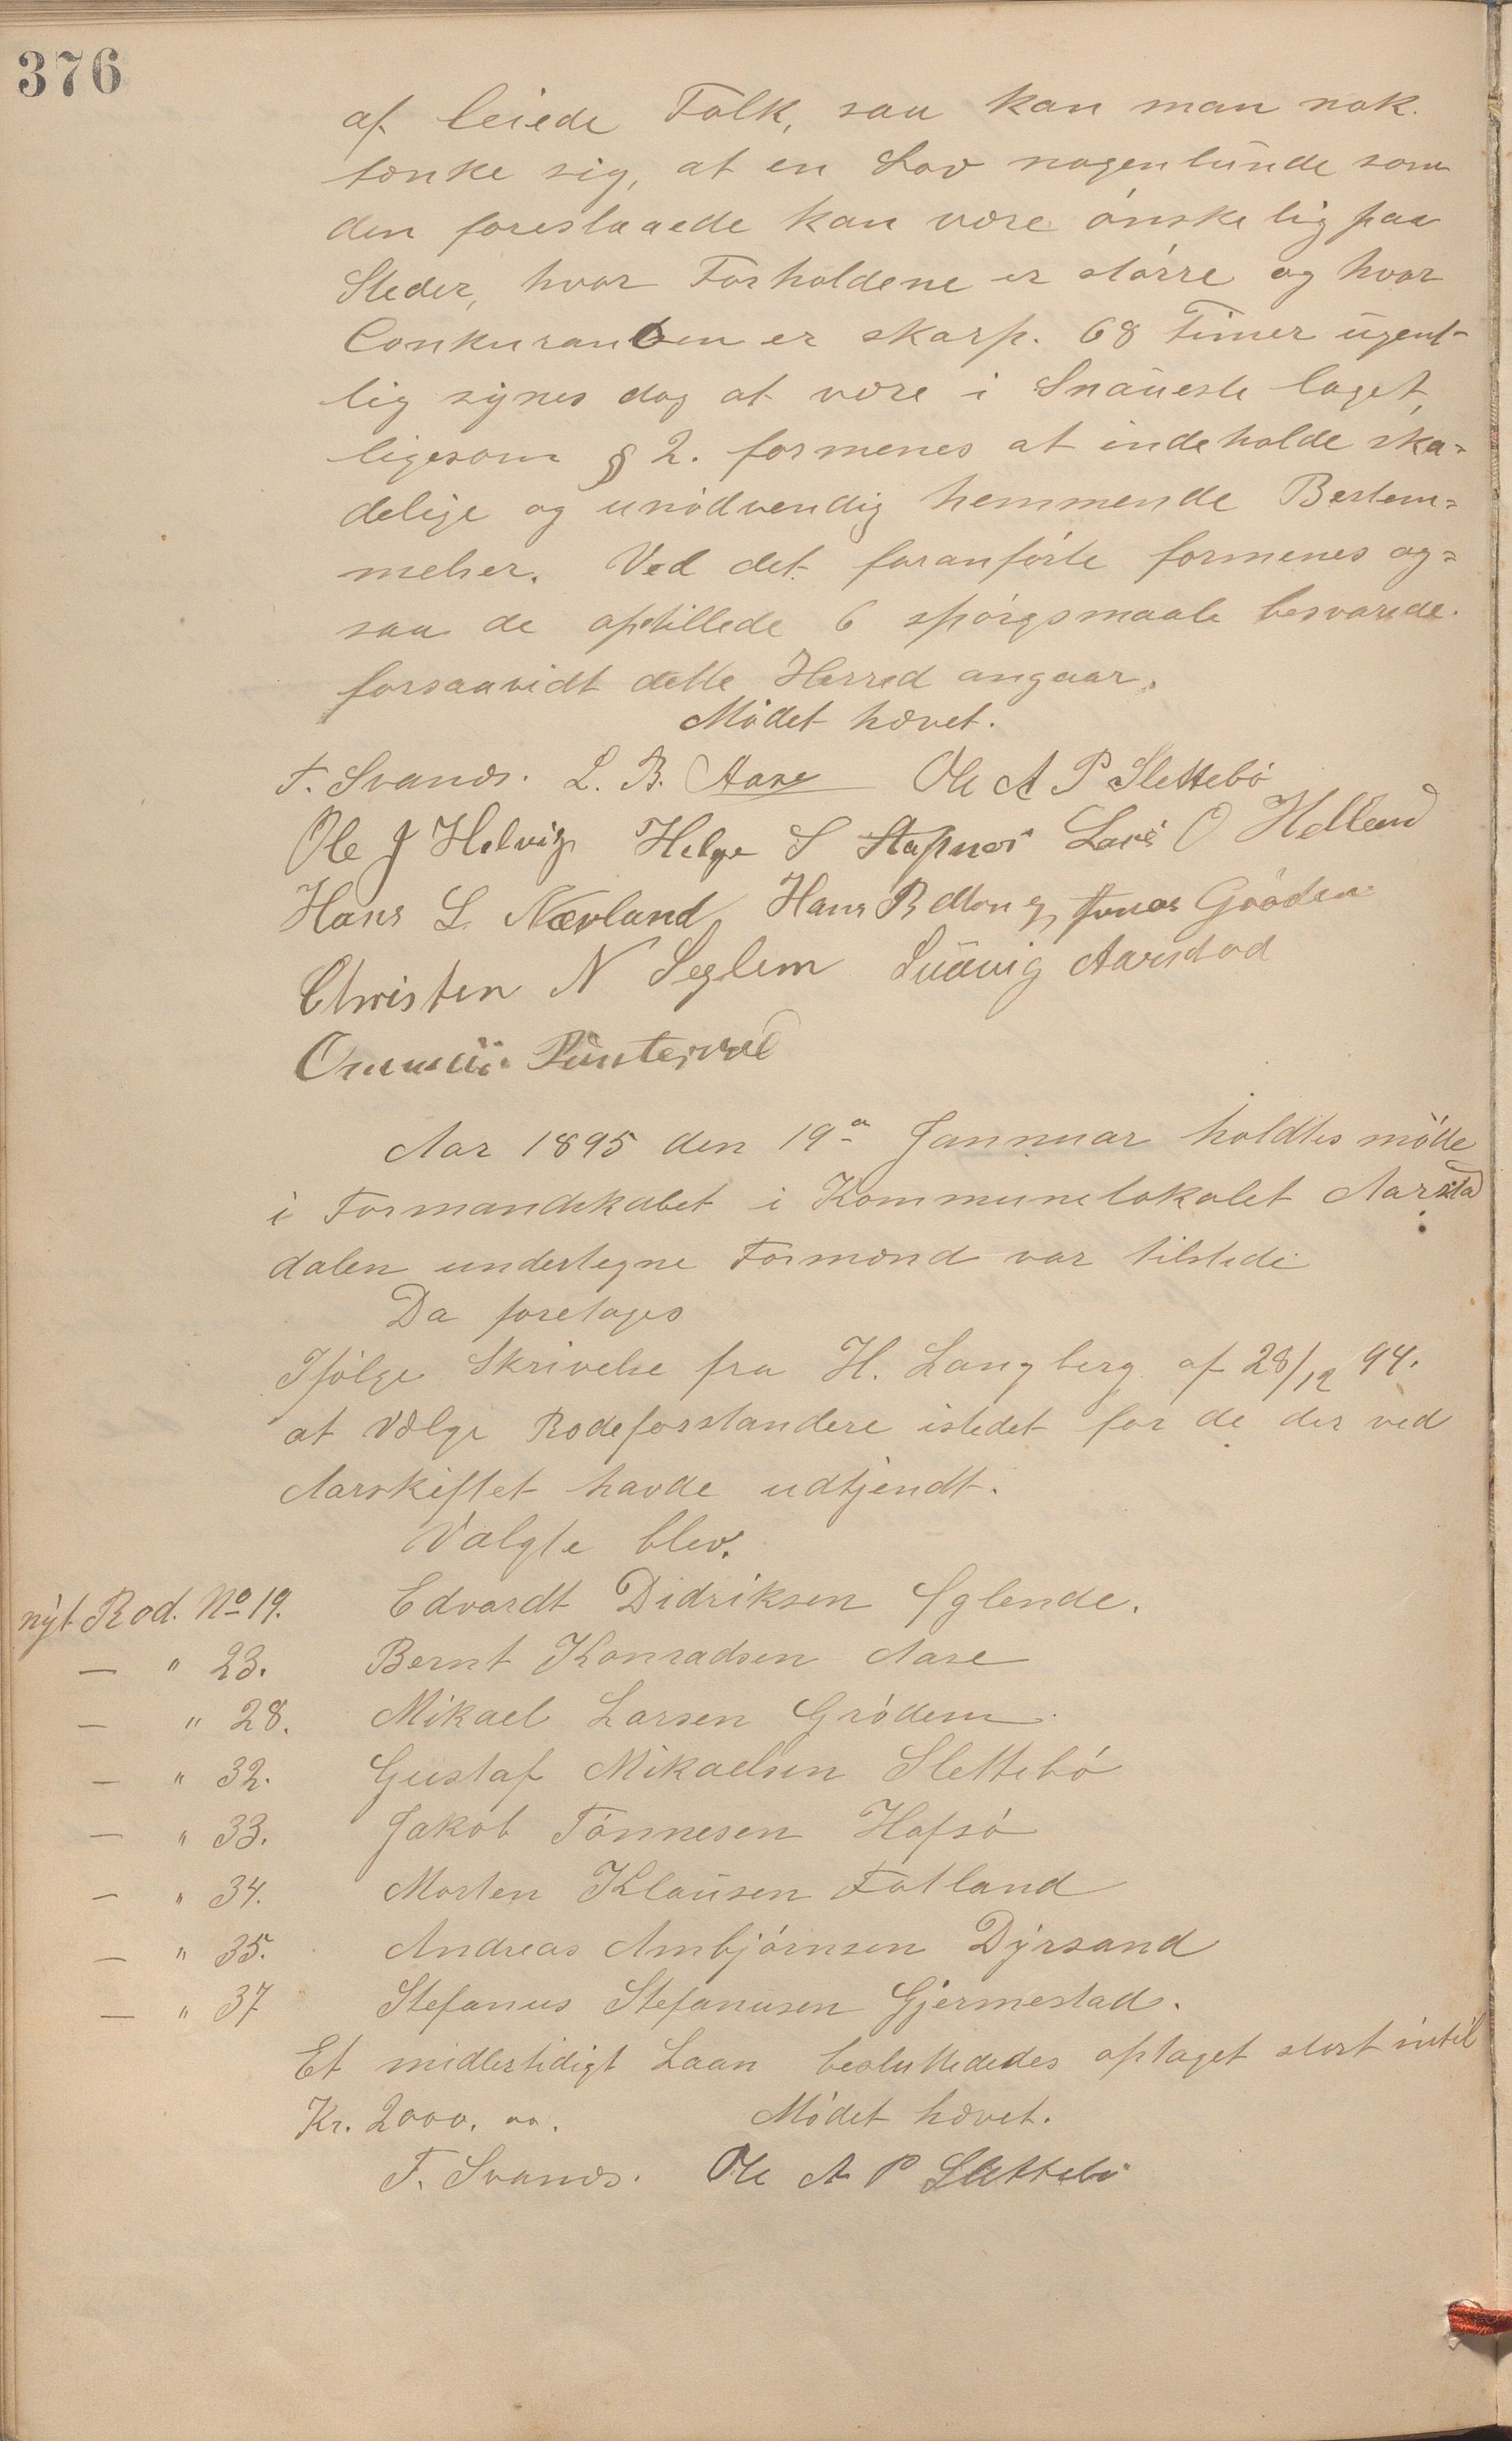 376
af leiede Folk, saa kan man nok.
tænke sig, at en Lov nogenlunde som
den foreslaaede kan være ønskelig paa
Steder, hvor Forholdene er større og hvor
Conkurancen er skarp. 68 Timer ugent-
lig synes dog at være i Snaueste laget,
ligesom § 2. formenes at indeholde ska-
delige og unødvendig hemmende Bestem-
melser. Ved det foranførte formenes og-
saa de opstillede 6 spørgsmaale besvarede.
forsaavidt dette Herred angaar.
Mødet hævet.
F. Svanes. L. B. Aase Ole A P Slettebø
Ole J Helvig Helge S Stapnes Lars O Helland
Hans L. Nævland Hans R Mong Jonas Grøden
Christen N Seglem Ludvig Aarstad
Ommun Puntervol
Aar 1895 den 19de Jannuar holdtes møtte
i Formandskabet i Kommunelokalet Aarstad
dalen undertegne Formænd var tilstede
Da foretages
Ifølge Skrivelse fra H. Langberg af 28/12 94.
at Vælge Rodeforstandere istedet for de der ved
Aarskiftet havde udtjendt.
Valgte blev.
nyt Rod. No 19. Edvardt Didriksen Eglende.
— " 23. Bernt Konradsen Aase
— " 28. Mikael Larsen Grødem
— " 32. Gustaf Mikaelsen Slettebø
— " 33. Jakob Tønnesen Hafsø
— " 34. Morten Klausen Fotland
— " 35. Andreas Ambjørnsen Dyrsand
— " 37 Stefanus Stefanusen Gjermestad.
Et midlertidigt Laan besluttededes optaget stort intil
Kr. 2000. oo. Mødet hævet.
F. Svanes. Ole A P Slettebø